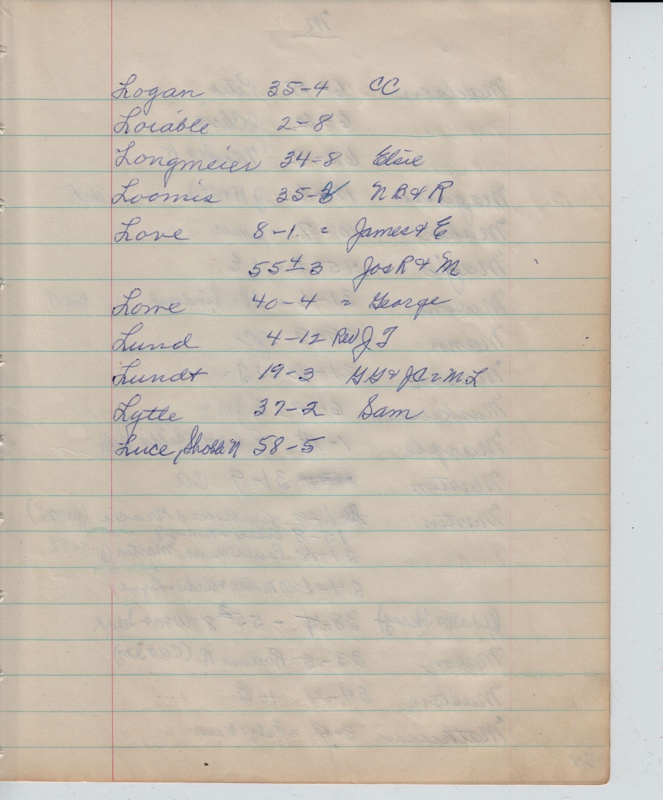 Logan 35-4 CC
Loiable 2-8
Longmeier 34-8 Elsie
Loomis 35- N B & R
Love 8-1. = James & E
55 & 3 Jos R & M
Lowe 40-4 = George
Lund 4-12 Rev J T
Lundt - 19-3 G G & J C = M L
Lytle 37-2 Sam
Luce 58-5